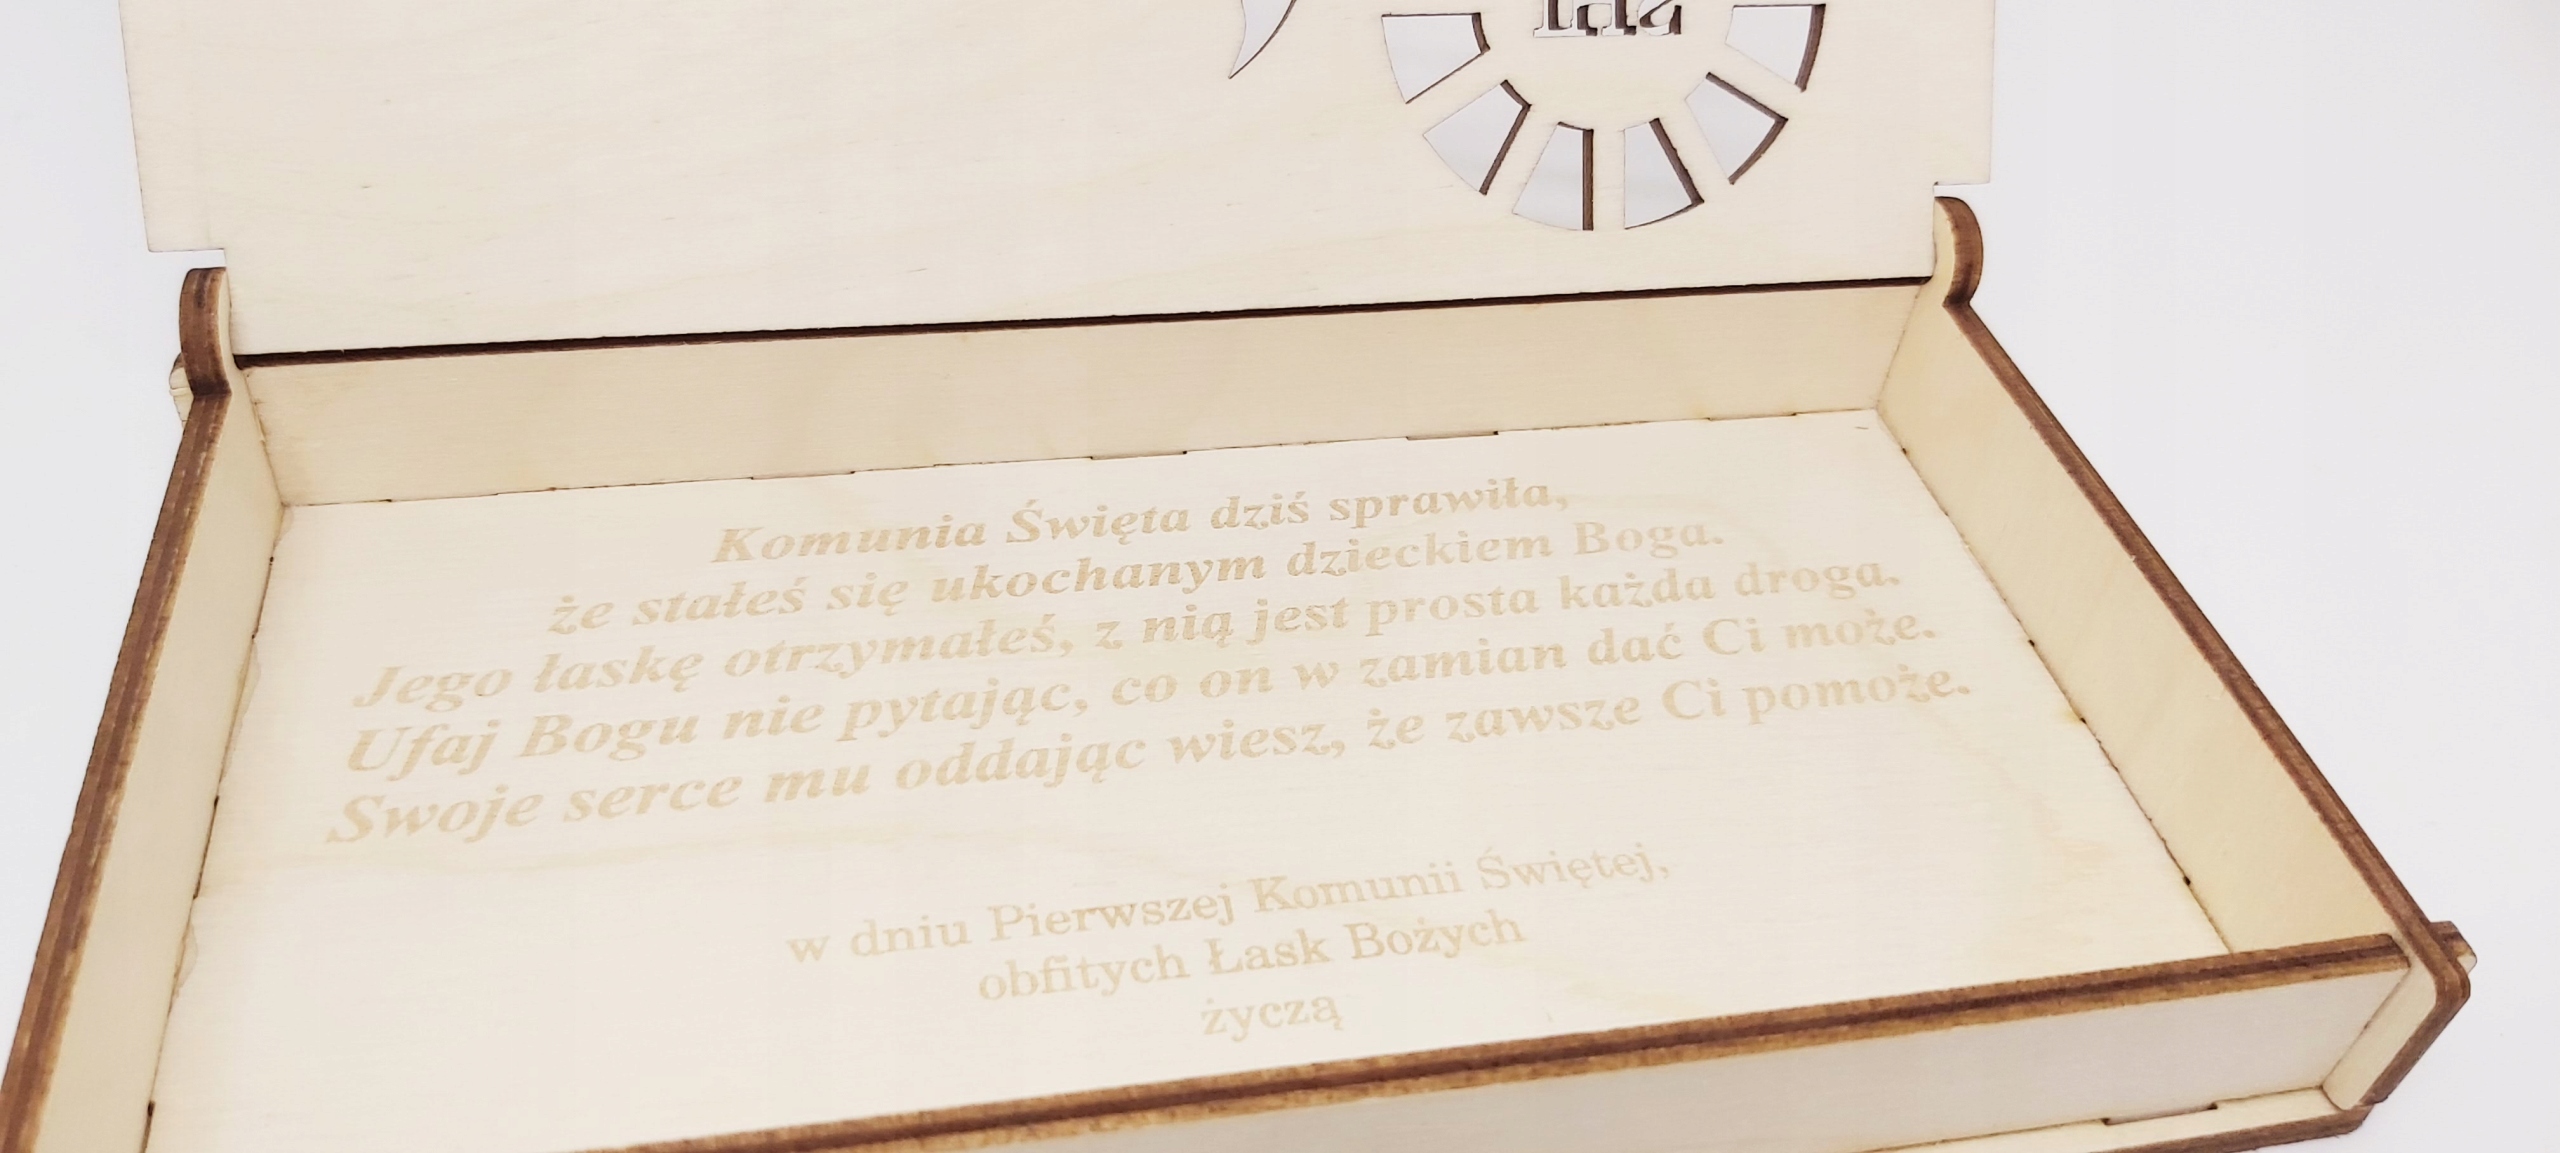 IHS
Komunia Święta dziś sprawiła,
że stałeś się ukochanym dzieckiem Boga.
Jego łaskę otrzymałeś, z nią jest prosta każda droga.
Ufaj Bogu nie pytając, co on w zamian dać Ci może.
Swoje serce mu oddając wiesz, że zawsze Ci pomoże.
w dniu Pierwszej Komunii Świętej,
obfitych Łask Bożych
życzą